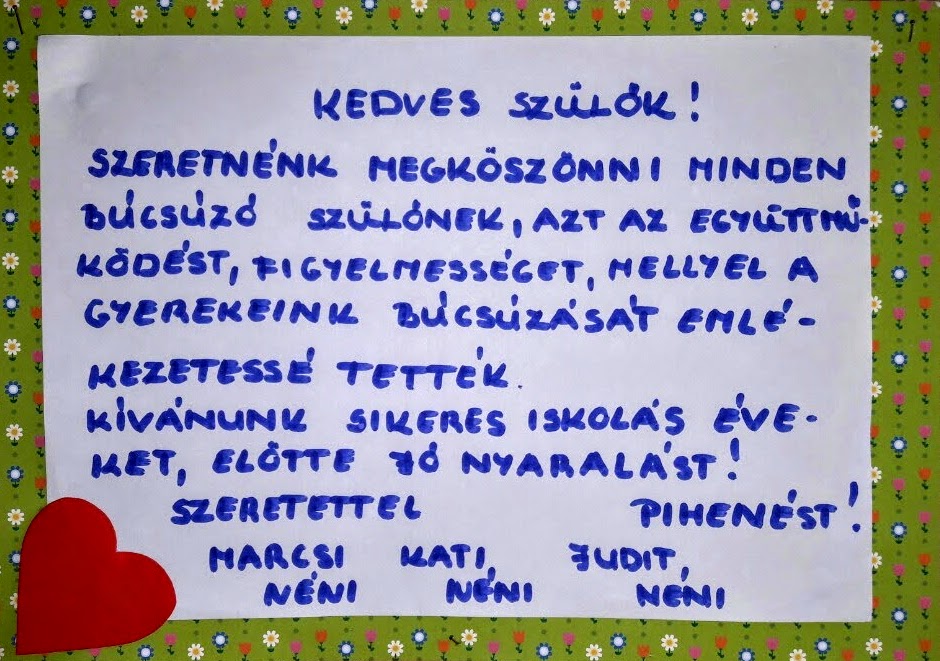 KEDVES SZÜLŐK!
SZERETNÉNK MEGKÖSZÖNNI MINDEN
BÚCSÚZÓ SZÜLŐNEK, AZT AZ EGYÜTTMŰ-
KÖDÉST, FIGYELMESSÉGET, MELLYEL A
GYEREKEINK BÚCSÚZÁSÁT EMLÉ-
KEZETESSÉ TETTÉK.
KÍVÁNUNK SIKERES ISKOLÁS ÉVE-
KET, ELŐTTE JÓ NYARALÁST!
SZERETETTEL PIHENÉST!
MARCSI KATI, JUDIT,
NÉNI NÉNI NÉNI